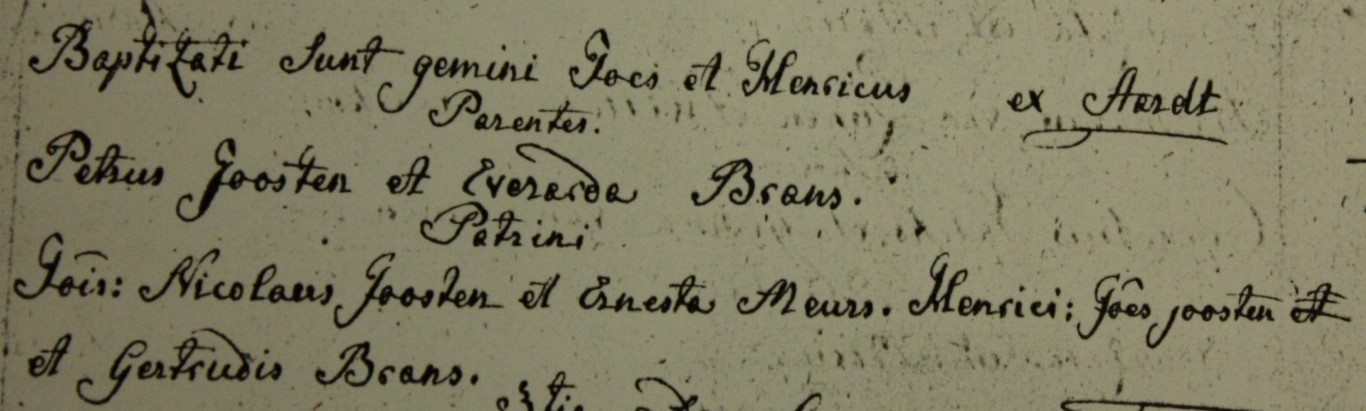 Baptizati sunt gemini Joes et Henricus ex Aerdt
Parentes.
Petrus Joosten et Everarda Brans.
Patrini
Joîs: Nicolaus Joosten et Ernesta Meurs. Henrici: Joês joosten et
et Gertrudis Brans.